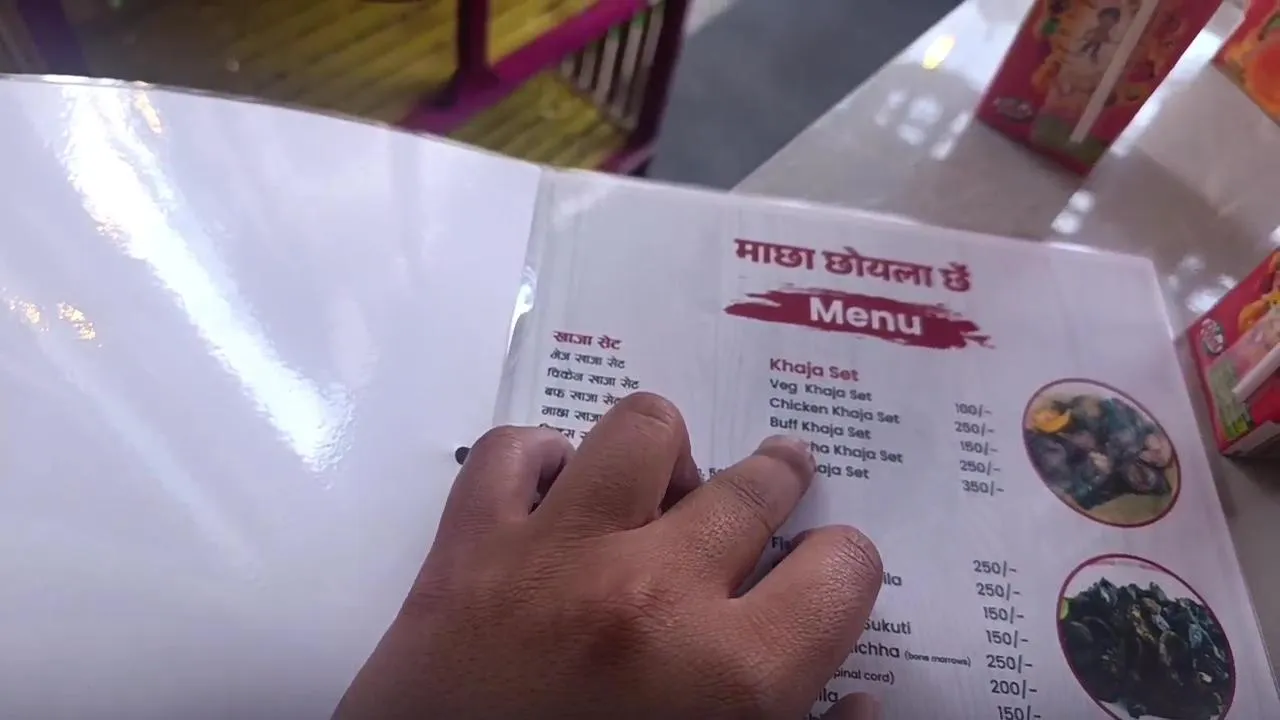 माछा छोयला छेँ
Menu
खाजा सेट
भेज खाजा सेट
चिकेन खाजा सेट
बफ खाजा सेट
माछा खाजा
Khaja Set
Veg Khaja Set 100/-
Chicken Khaja Set 250/-
Buff Khaja Set 150/-
Khaja Set 250/-
Set 350/-
250/-
250/-
150/-
Sukuti 150/-
(bone marrows) 250/-
cord) 200/-
150/-